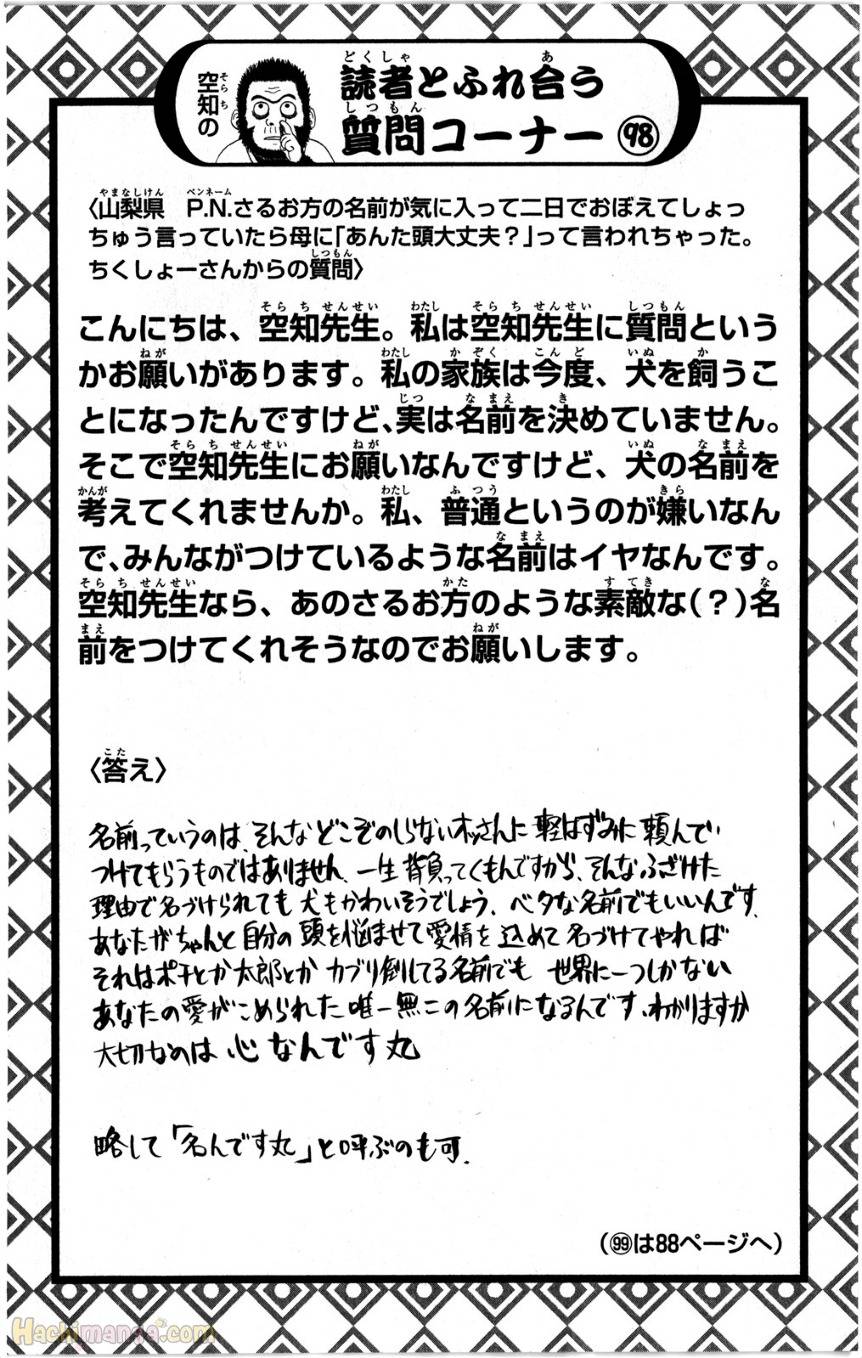 空知の
読者とふれ合う
質問コーナー98
〈山梨県 P.N.さるお方の名前が気に入って二日でおぼえてしょっ
ちゅう言っていたら母に「あんた頭大丈夫？」って言われちゃった。
ちくしょーさんからの質問〉
こんにちは、空知先生。私は空知先生に質問という
かお願いがあります。私の家族は今度、犬を飼うこ
とになったんですけど、実は名前を決めていません。
そこで空知先生にお願いなんですけど、犬の名前を
考えてくれませんか。私、普通というのが嫌いなん
で、みんながつけているような名前はイヤなんです。
空知先生なら、あのさるお方のような素敵な（？）名
前をつけてくれそうなのでお願いします。
〈答え〉
名前っていうのは、そんなどこぞのしらないオッさんに軽はずみに頼んで
つけてもらうものではありません、一生背負ってくもんですから、そんなふざけた
理由で名づけられても犬もかわいそうでしょう、ベタな名前でもいいんです、
あなたがちゃんと自分の頭を悩ませて愛情を込めて名づけてやれば
それはポチとか太郎とかカブリ倒してる名前でも 世界に一つしかない
あなたの愛がこめられた唯一無二の名前になるんです、わかりますか
大切なのは 心なんです丸
略して「名んです丸」と呼ぶのも可、
（99は88ページへ）
Hachimanga.com